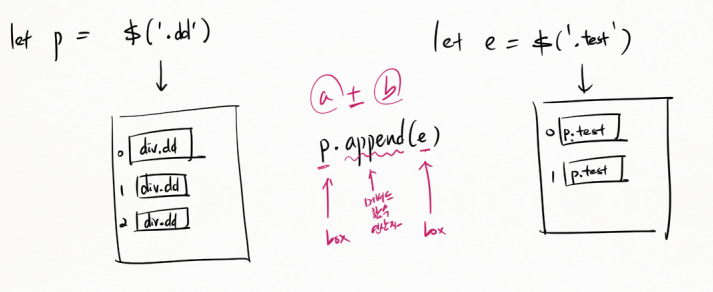 let p = $('.dd')
0 div.dd
1 div.dd
2 div.dd
a ± b
p.append(e)
box
메서드
함수
연산자
box
let e = $('.test')
0 p.test
1 p.test